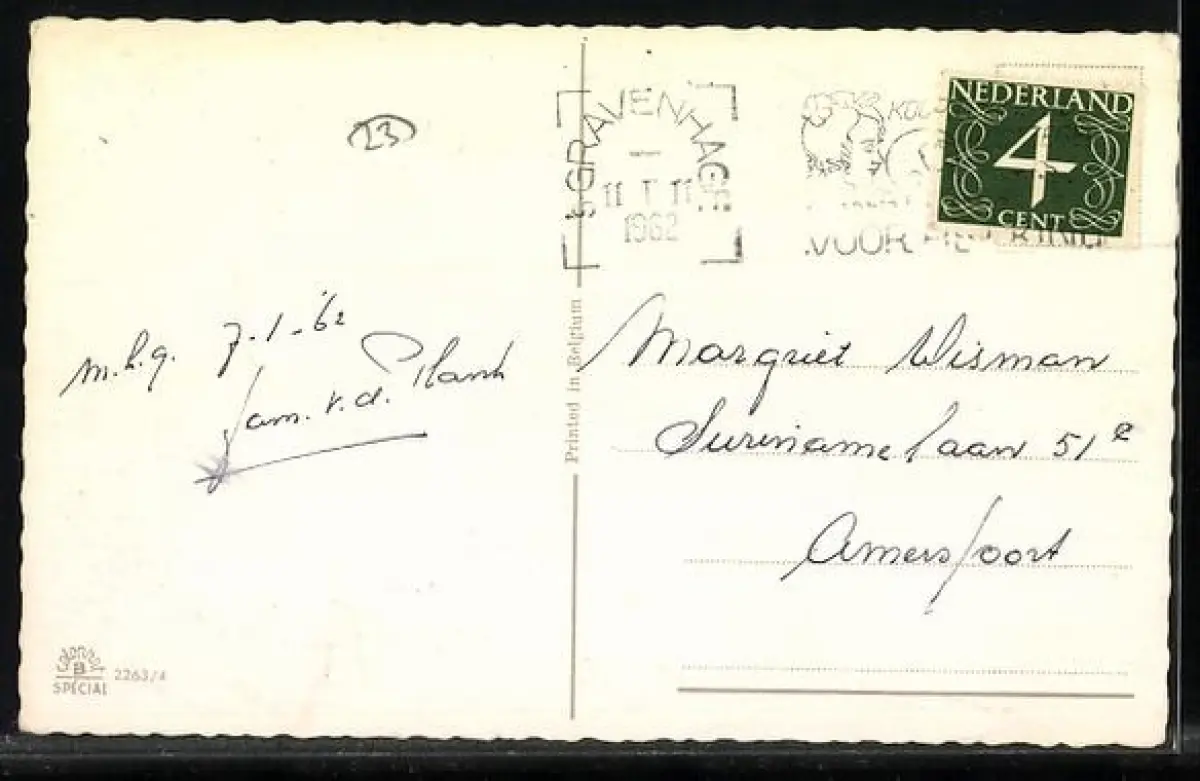 23
'S-GRAVENHAGE
11 I 11
1962
VOOR
NEDERLAND
4
CENT
m.h.g. 7-1-'62
fam. v.d. Plank
Printed in Belgium
Margriet Wisman
Surinamelaan 51a
Amersfoort
colorprint
B
SPECIAL
2263/4